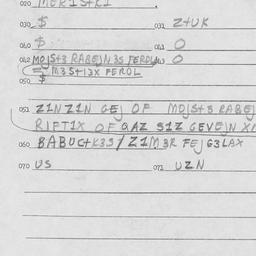 020 MERISTKI
030 $ 031 Z+UK
040 $ 041 O
042 MOJS+3 RABEJN 3S FEROL 043 O
M3S+I3X FEROL
050 $
051 Z1NZ1N GEJ OF MOJS+3 RABEJ
RIFTIX OF QAZ S1Z GEVEJN
060 BABUC+K3S/Z1M3R FEJ G3LAX
070 US 071 UZN